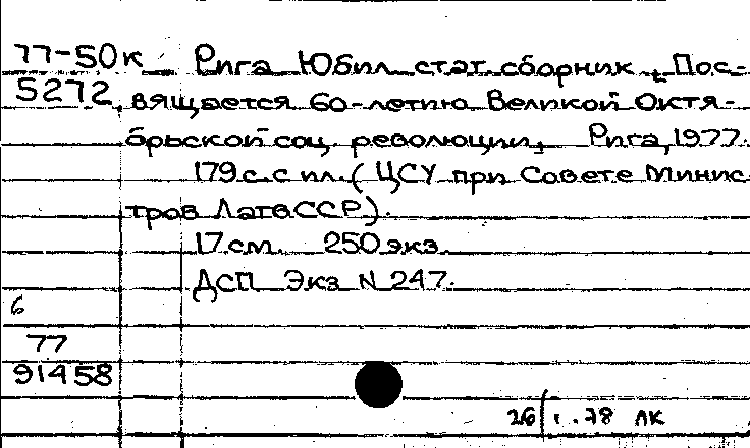 77-50к Рига Юбил стат.сборник. Пос-
5272 вящается 60-летию Великой Октя-
брьской соц. революции, Рига, 1977.
179 с. с ил. (ЦСУ при Совете Минис
тров Латв ССР).
17 см. 250 экз.
ДСП Экз N 247.
6
77
91458
26/ 1.78 ЛК